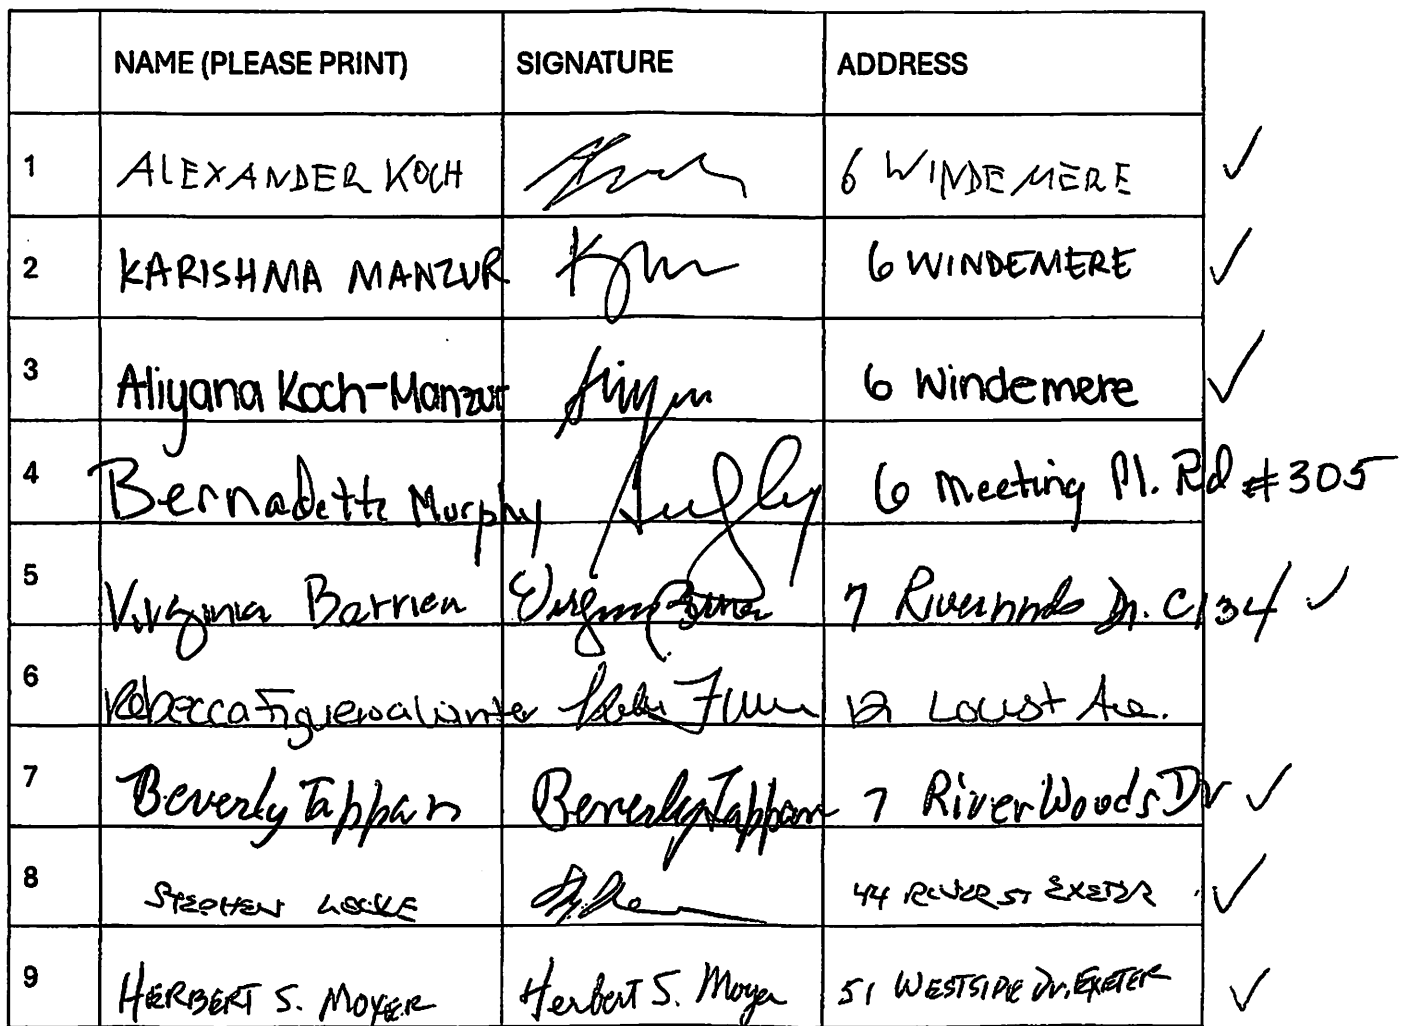 NAME (PLEASE PRINT) SIGNATURE ADDRESS
1 ALEXANDER KOCH 6 WINDEMERE ✓
2 KARISHMA MANZUR 6 WINDEMERE ✓
3 Aliyana Koch-Manzur 6 Windemere ✓
4 Bernadette Murphy 6 Meeting Pl. Rd #305
5 Virginia Barrien 7 Dr. C134 ✓
6 Rebecca 12 Locust Ave.
7 Beverly Tappan Beverly Tappan 7 RiverWoods Dr ✓
8 STEPHEN LOCKE 44 RIVER ST EXETER ✓
9 HERBERT S. MOYER Herbert S. Moyer 51 WESTSIDE Dr. EXETER ✓